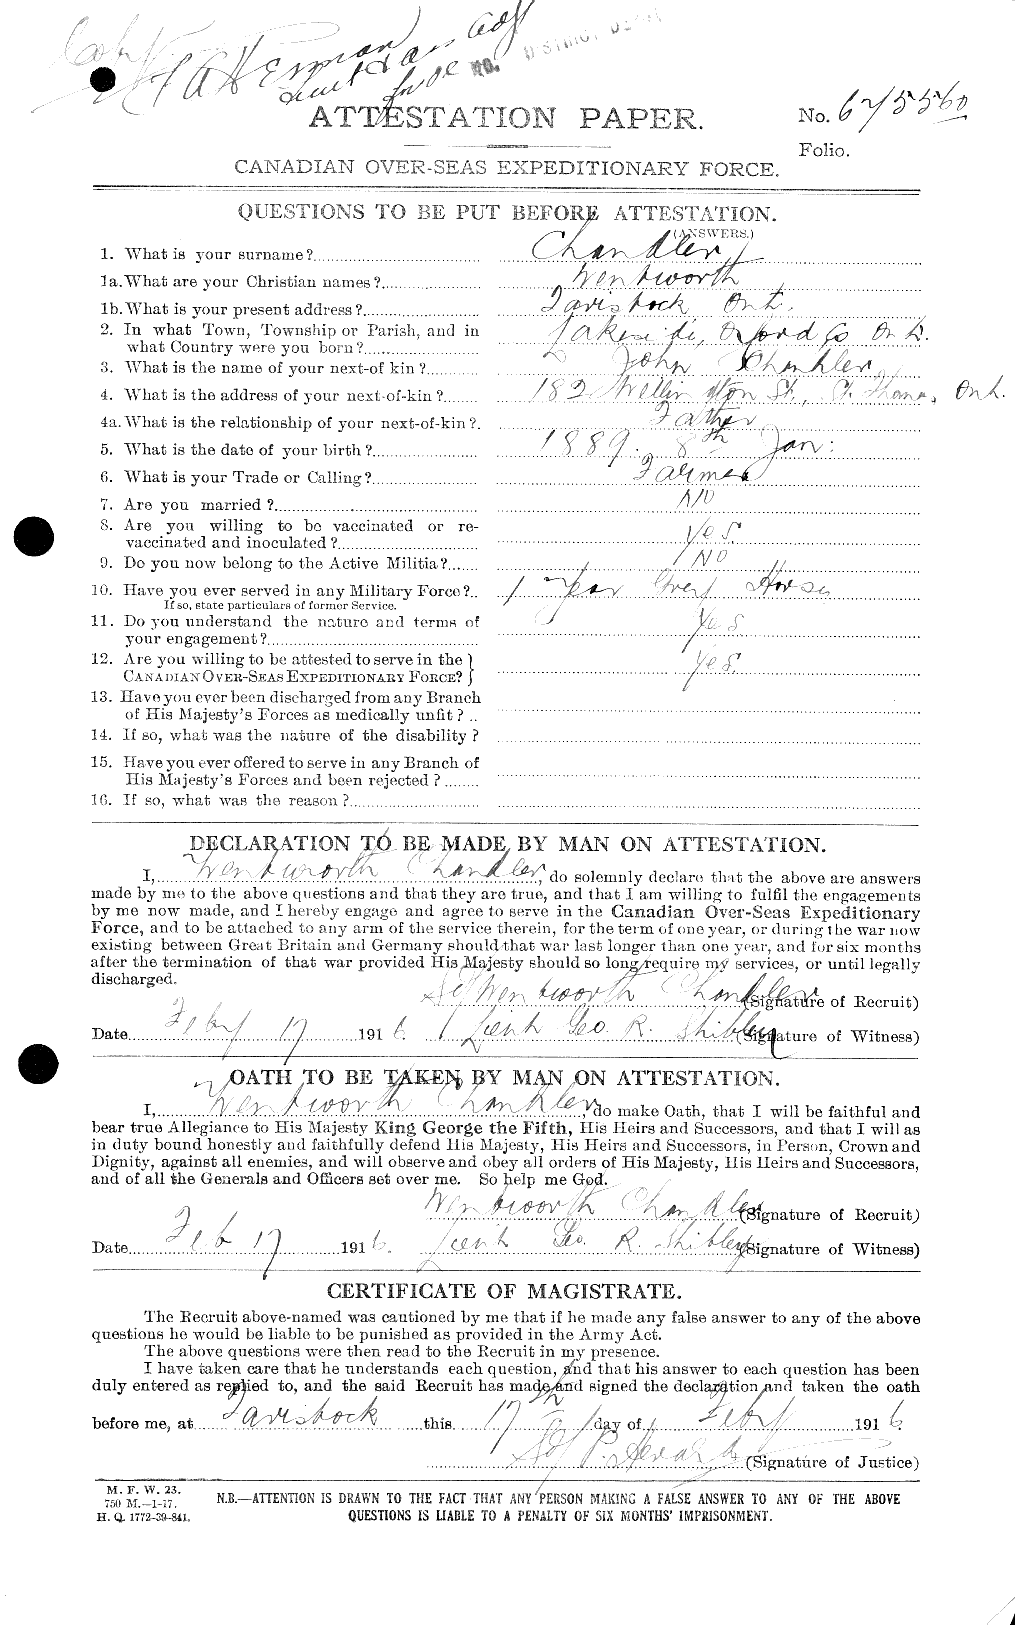 Copy
DISTRICT DEPOT
ATTESTATION PAPER.
No. 675560
Folio.
CANADIAN OVER-SEAS EXPEDITIONARY FORCE.
QUESTIONS TO BE PUT BEFORE ATTESTATION.
(ANSWERS.)
1. What is your surname? Chandler
1a. What are your Christian names? Wentworth
1b. What is your present address? Tavistock, Ont.
2. In what Town, Township or Parish, and in
what Country were you born? Lakeside, Oxford Co Ont.
3. What is the name of your next-of kin? John Chandler
4. What is the address of your next-of-kin? 182 Wellington St., St. Thomas, Ont.
4a. What is the relationship of your next-of-kin? Father
5. What is the date of your birth? 1889. 8th Jan:
6. What is your Trade or Calling? Farmer
7. Are you married? No
8. Are you willing to be vaccinated or re-
vaccinated and inoculated? Yes.
9. Do you now belong to the Active Militia? No
10. Have you ever served in any Military Force? 1 Year Grey Horse
If so, state particulars of former Service.
11. Do you understand the nature and terms of
your engagement? Yes
12. Are you willing to be attested to serve in the
CANADIAN OVER-SEAS EXPEDITIONARY FORCE? Yes.
13. Have you ever been discharged from any Branch
of His Majesty's Forces as medically unfit?
14. If so, what was the nature of the disability?
15. Have you ever offered to serve in any Branch of
His Majesty's Forces and been rejected?
16. If so, what was the reason?
DECLARATION TO BE MADE BY MAN ON ATTESTATION.
I, Wentworth Chandler, do solemnly declare that the above are answers
made by me to the above questions and that they are true, and that I am willing to fulfil the engagements
by me now made, and I hereby engage and agree to serve in the Canadian Over-Seas Expeditionary
Force, and to be attached to any arm of the service therein, for the term of one year, or during the war now
existing between Great Britain and Germany should that war last longer than one year, and for six months
after the termination of that war provided His Majesty should so long require my services, or until legally
discharged.
Sgd Wentworth Chandler (Signature of Recruit)
Date Feby 17 1916 Lieut Geo. R. Shibley (Signature of Witness)
OATH TO BE TAKEN BY MAN ON ATTESTATION.
I, Wentworth Chandler, do make Oath, that I will be faithful and
bear true Allegiance to His Majesty King George the Fifth, His Heirs and Successors, and that I will as
in duty bound honestly and faithfully defend His Majesty, His Heirs and Successors, in Person, Crown and
Dignity, against all enemies, and will observe and obey all orders of His Majesty, His Heirs and Successors,
and of all the Generals and Officers set over me. So help me God.
Wentworth Chandler (Signature of Recruit)
Date Feb 17 1916. Lieut Geo. R. Shibley (Signature of Witness)
CERTIFICATE OF MAGISTRATE.
The Recruit above-named was cautioned by me that if he made any false answer to any of the above
questions he would be liable to be punished as provided in the Army Act.
The above questions were then read to the Recruit in my presence.
I have taken care that he understands each question, and that his answer to each question has been
duly entered as replied to, and the said Recruit has made and signed the declaration and taken the oath
before me, at Tavistock this 17th day of Feby 1916.
Sgd P. (Signature of Justice)
M. F. W. 23.
750 M.—1-17.
H. Q. 1772-39-841.
N.B.—ATTENTION IS DRAWN TO THE FACT THAT ANY PERSON MAKING A FALSE ANSWER TO ANY OF THE ABOVE
QUESTIONS IS LIABLE TO A PENALTY OF SIX MONTHS' IMPRISONMENT.